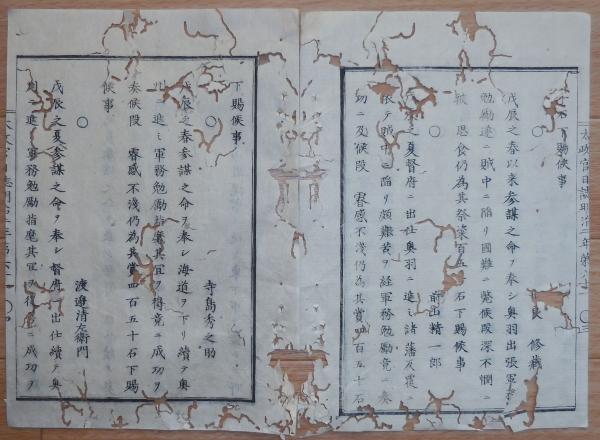 太政官日誌明治二年第六十
下賜候事
良 修蔵
戊辰之春以来参謀之命ヲ奉シ奥羽出張軍事
勉勵遂ニ賊中ニ陥リ國難ニ斃候段深不憫ニ
被 思食仍為其祭粢百五 石下賜候事
○
前山精一郎
戊辰之夏督府ニ出仕奥羽ニ進ミ諸藩反覆ニ
際シ賊中ニ陥リ頗艱苦ヲ経軍務勉勵竟ニ奏
功ニ及候段 叡感不淺仍為其賞四百五十石
下賜候事
○
寺島秀之助
戊辰之春参謀之命ヲ奉シ海道ヲ下リ續テ奥
州ニ進ミ軍務勉勵指麾其宜ヲ得竟ニ成功ヲ
奏候段 叡感不淺仍為其賞四百五十石下賜
候事
○
渡邉清左衛門
戊辰之夏参謀之命ヲ奉シ督府ニ出仕續テ奥
州ニ進ミ軍務勉勵指麾其宜ヲ得竟ニ成功ヲ